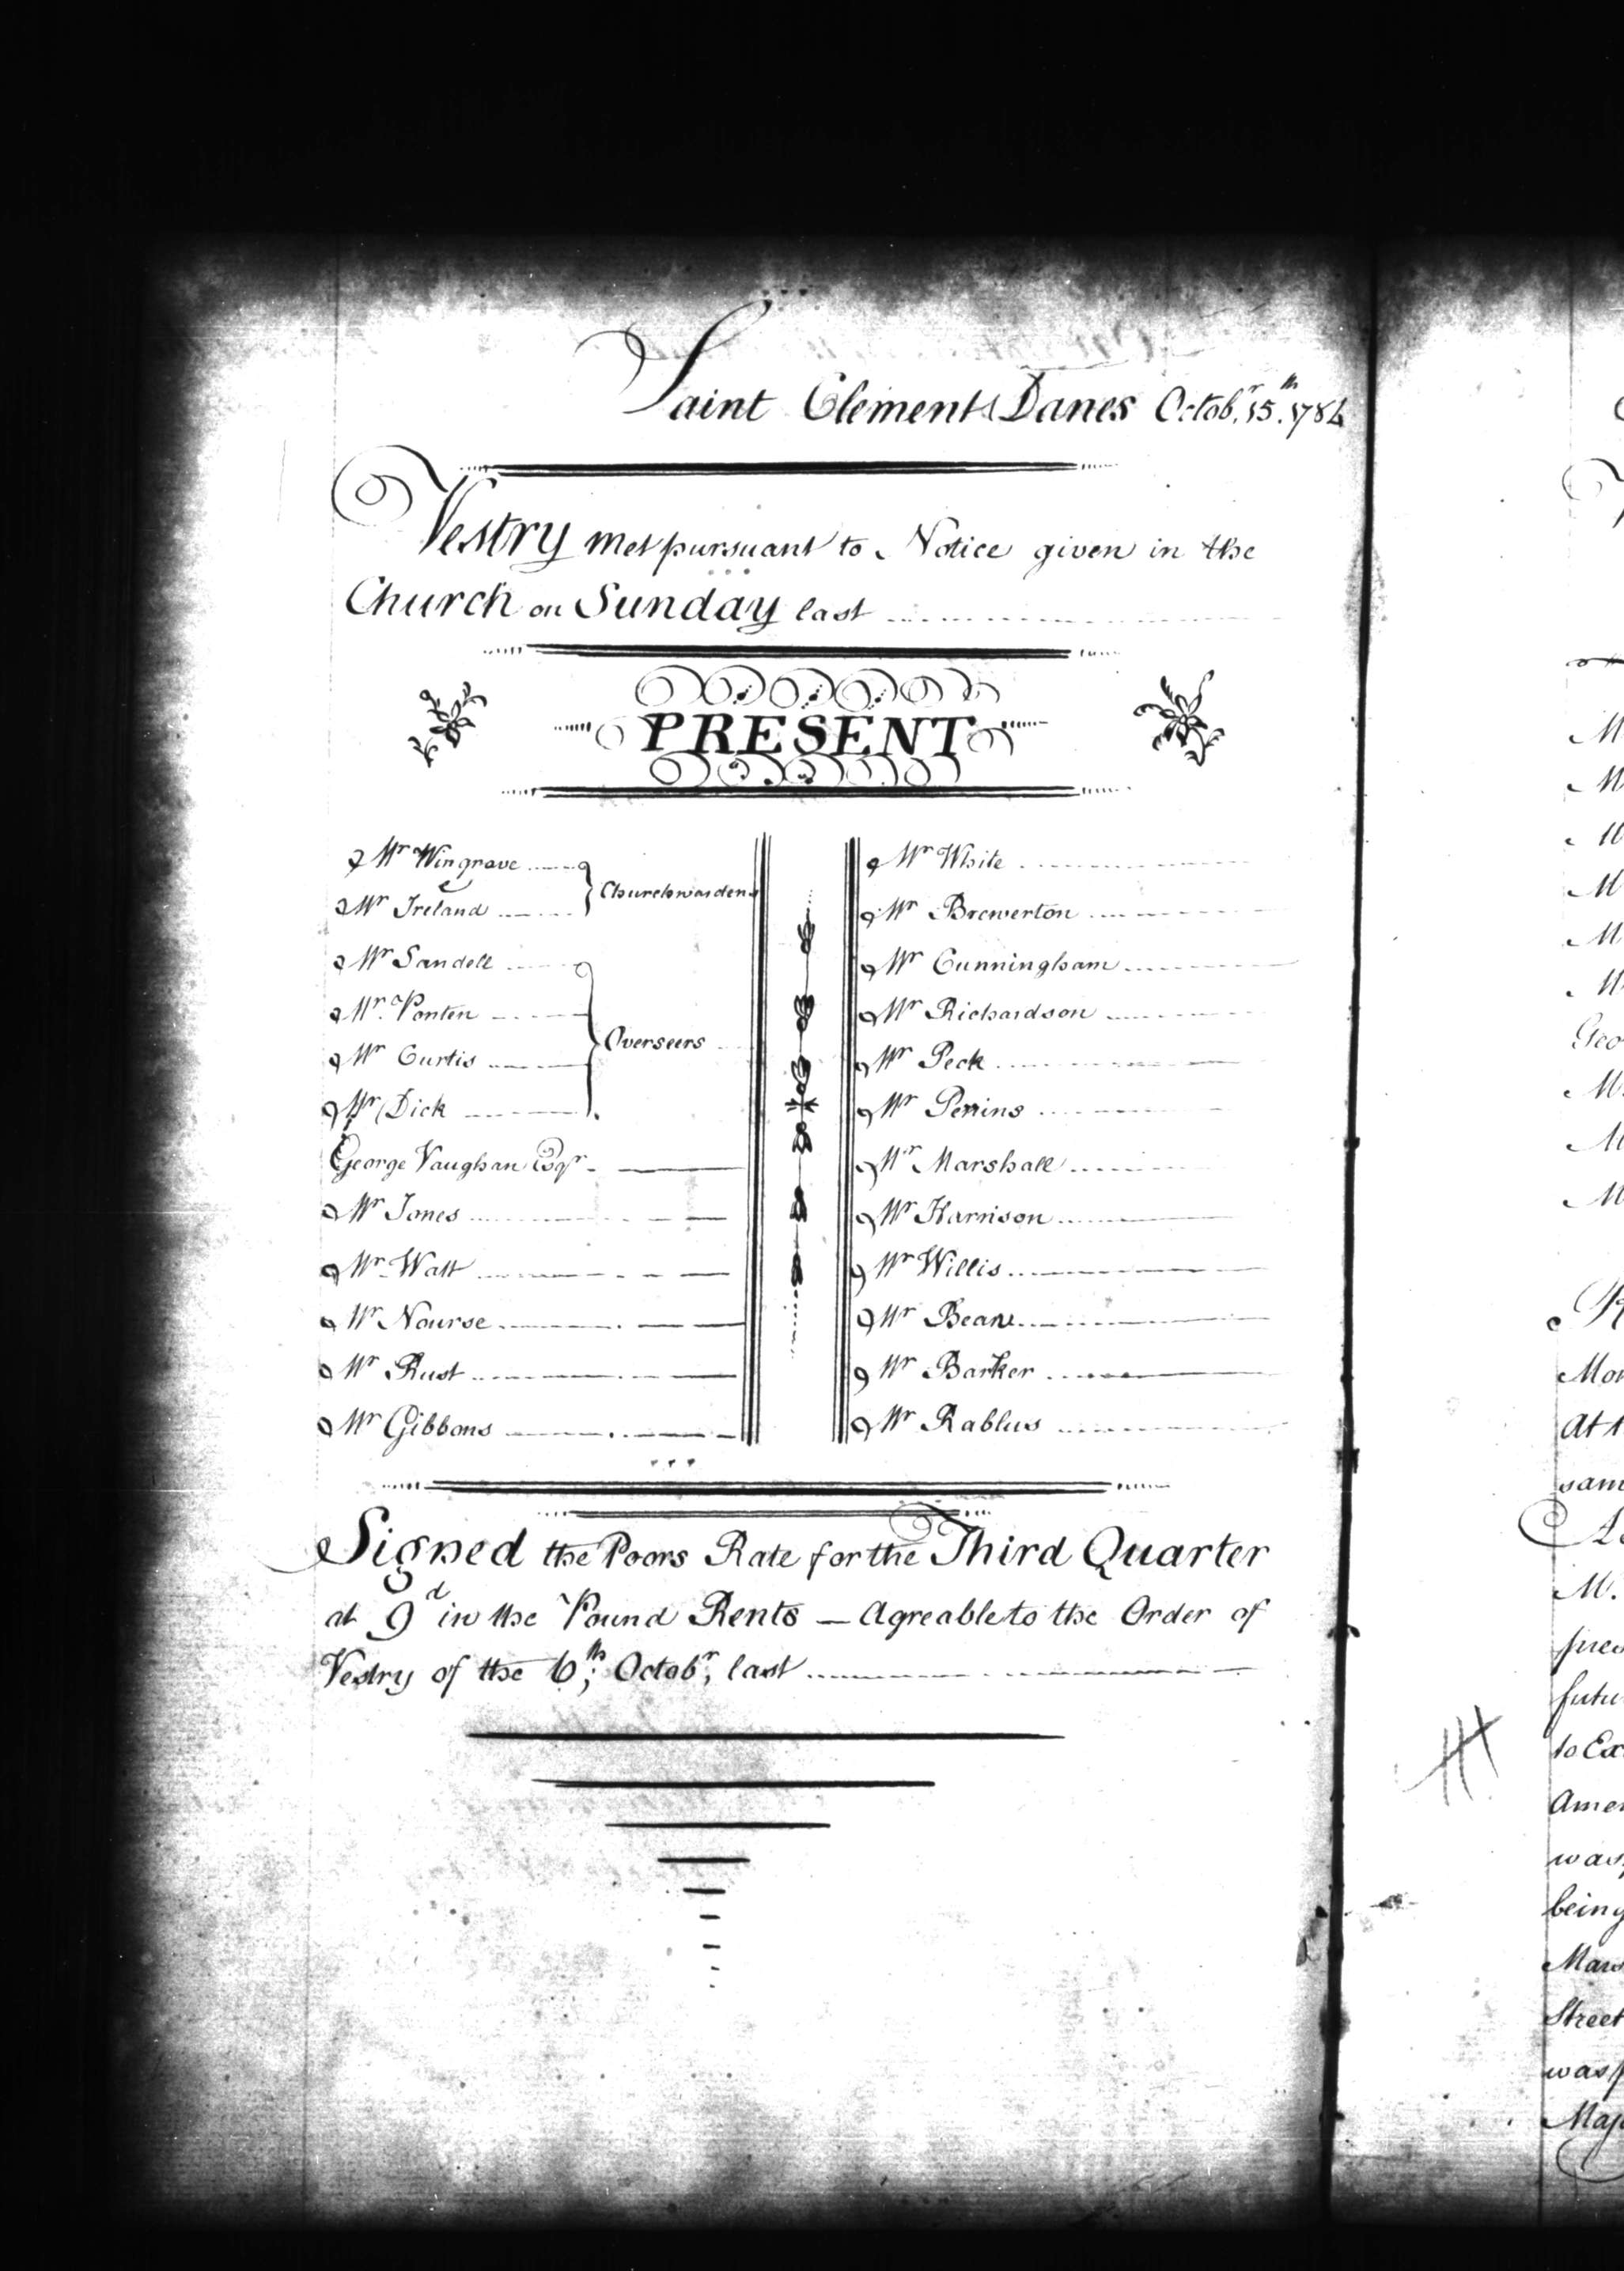 Saint Clement Danes Octobr. 15th. 1784
Vestry met pursuant to Notice given in the
Church on Sunday last
PRESENT
Mr Wingrave
Mr Ireland
Churchwardens
Mr Sandell
Mr. Ponten
Mr Curtis
Mr Dick
Overseers
George Vaughan Esqr.
Mr Jones
Mr. Watt
Mr Nourse
Mr Rust
Mr Gibbons
Mr White
Mr Brewerton
Mr Cunningham
Mr Richardson
Mr Peck
Mr Perrins
Mr Marshall
Mr Harrison
Mr Willis
Mr Bean
Mr Barker
Mr Rablus
Signed the Poors Rate for the Third Quarter
at 9d in the Pound Rents — Agreable to the Order of
Vestry of the 6th; Octobr, last
Geo
At
to Ex
being
Street